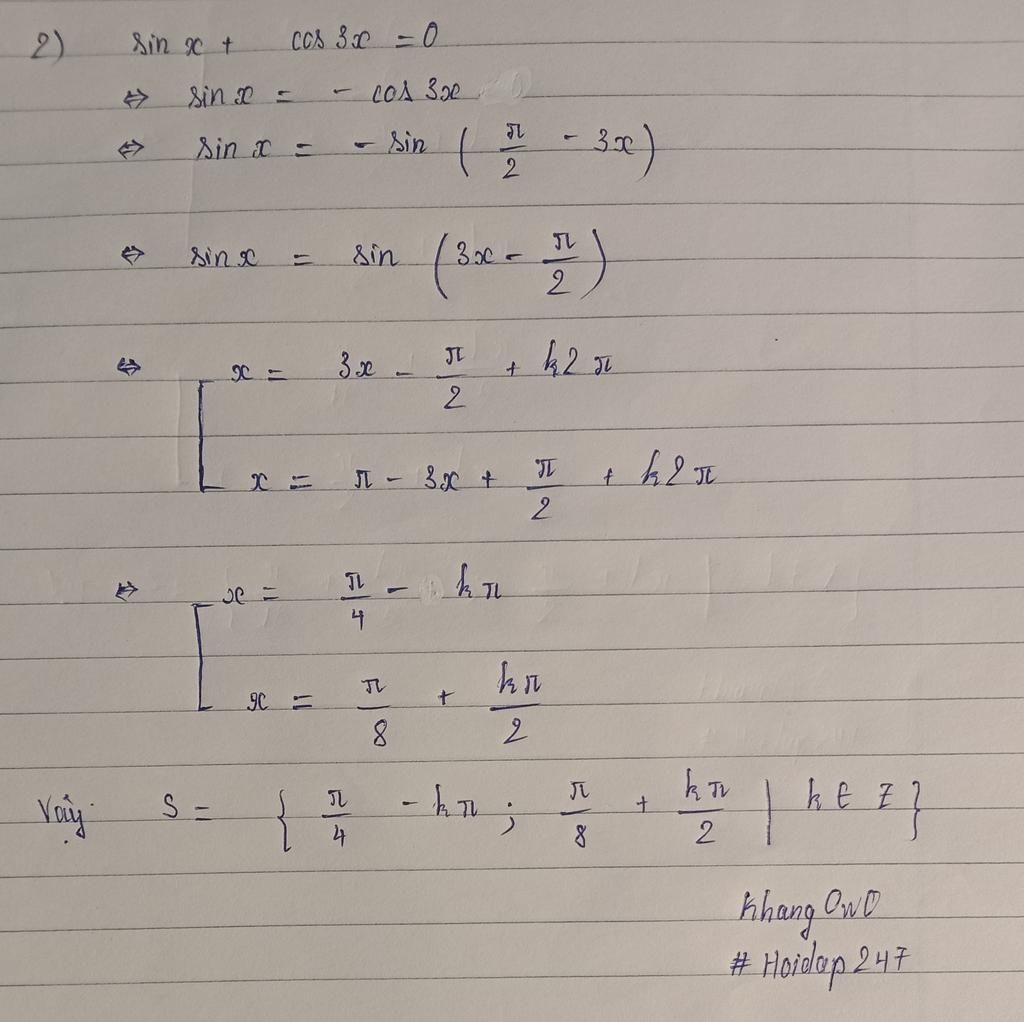 2) sin x + cos 3x = 0
⇔ sin x = - cos 3x
⇔ sin x = - sin ( π/2 - 3x )
⇔ sin x = sin ( 3x - π/2 )
⇔ [ x = 3x - π/2 + k2π
x = π - 3x + π/2 + k2π
⇔ [ x = π/4 - kπ
x = π/8 + kπ/2
Vậy S = { π/4 - kπ ; π/8 + kπ/2 | k ∈ Z }
Khang OwO
# Hoidap 247